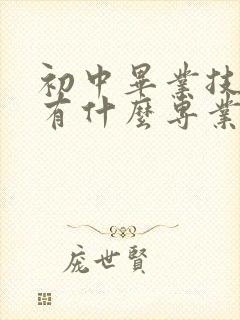 初中畢業技
有什麼專業
龐世賢